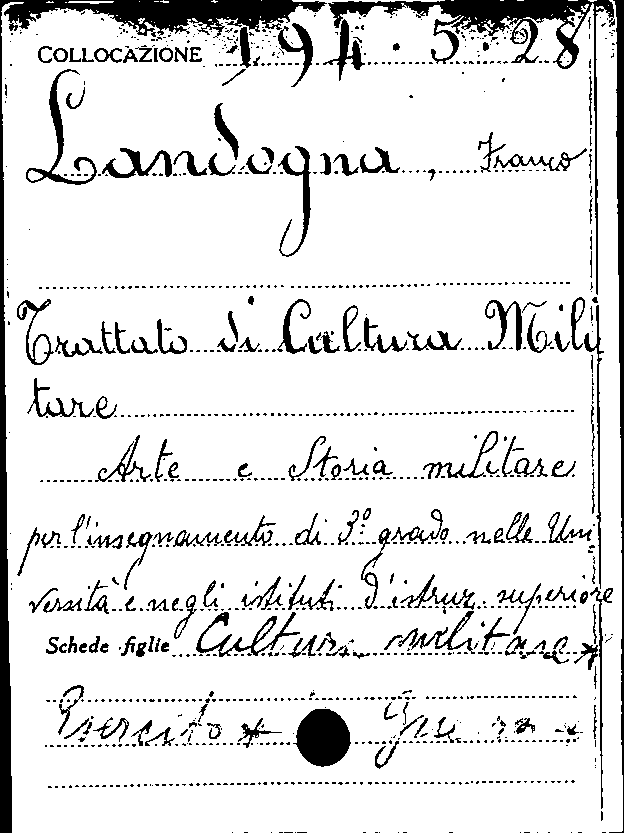 COLLOCAZIONE 194.5.28
Landogna, Franco
Trattato di Cultura Mili
tare
Arte e Storia militare
per l'insegnamento di 3º grado nelle Uni
versità e negli istituti d'istruz. superiore
Schede figlie Cultura militare *
Esercito * Guerra *